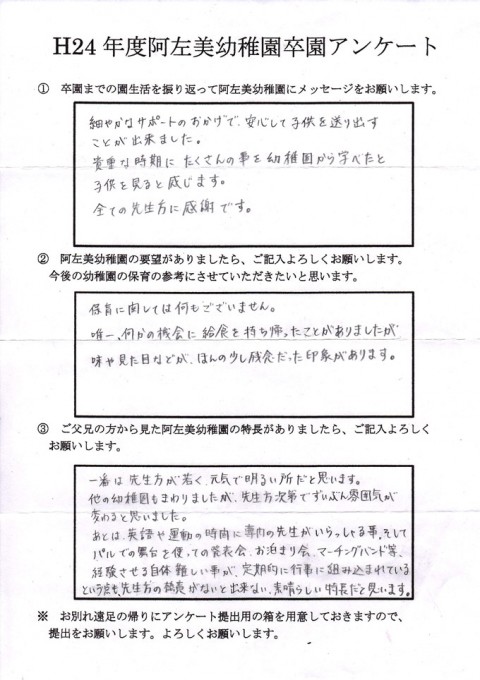 H24 年度阿左美幼稚園卒園アンケート
① 卒園までの園生活を振り返って阿左美幼稚園にメッセージをお願いします。
細やかなサポートのおかげで、安心して子供を送り出す
ことが出来ました。
貴重な時期にたくさんの事を幼稚園から学べたと
子供を見ると感じます。
全ての先生方に感謝です。
② 阿左美幼稚園の要望がありましたら、ご記入よろしくお願いします。
今後の幼稚園の保育の参考にさせていただきたいと思います。
保育に関しては何もございません。
唯一、何かの機会に給食を持ち帰ったことがありましたが
味や見た目などが、ほんの少し残念だった印象があります。
③ ご父兄の方から見た阿左美幼稚園の特長がありましたら、ご記入よろしく
お願いします。
一番は先生方が若く、元気で明るい所だと思います。
他の幼稚園もまわりましたが、先生方次第でずいぶん雰囲気が
変わると思いました。
あとは、英語や運動の時間に専門の先生がいらっしゃる事、そして
パルでの舞台を使っての発表会、お泊まり会、マーチングバンド等、
経験させる自体難しい事が、定期的に行事に組み込まれている
という点も、先生方の熱意がないと出来ない、素晴らしい特長だと思います。
※ お別れ遠足の帰りにアンケート提出用の箱を用意しておきますので、
提出をお願いします。よろしくお願いします。